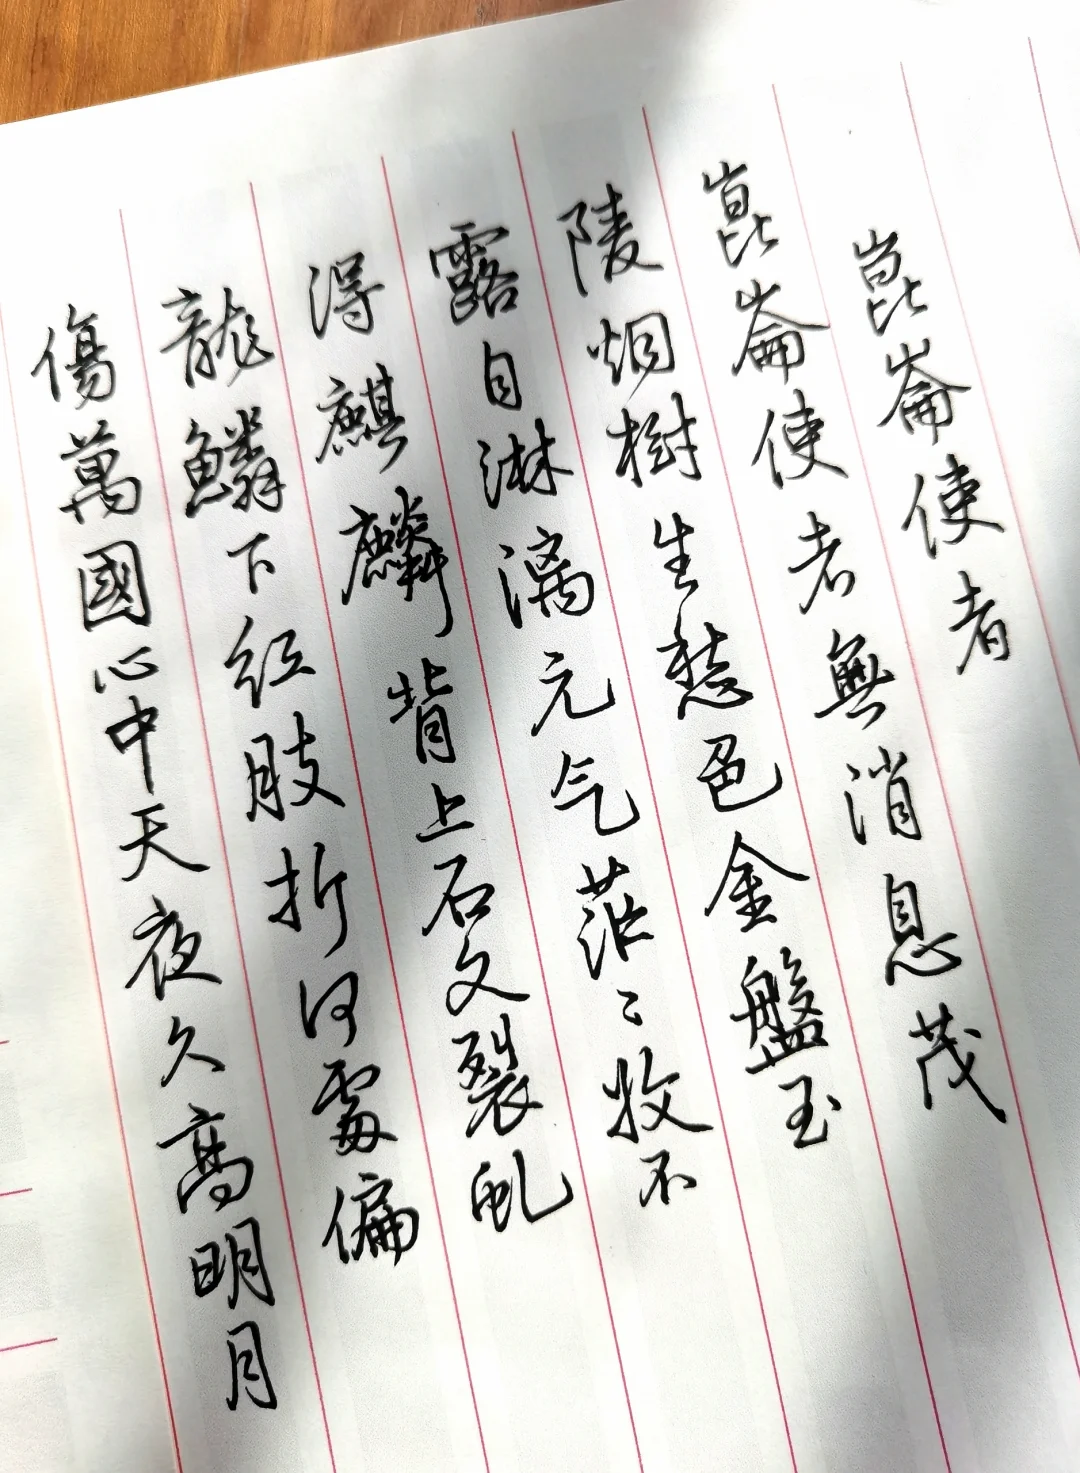 崑崙使者
崑崙使者無消息茂
陵烟樹生愁色金盤玉
露自淋漓元气茫〻收不
得麒麟背上石文裂虬
龍鱗下红肢折何處偏
傷萬國心中天夜久高明月